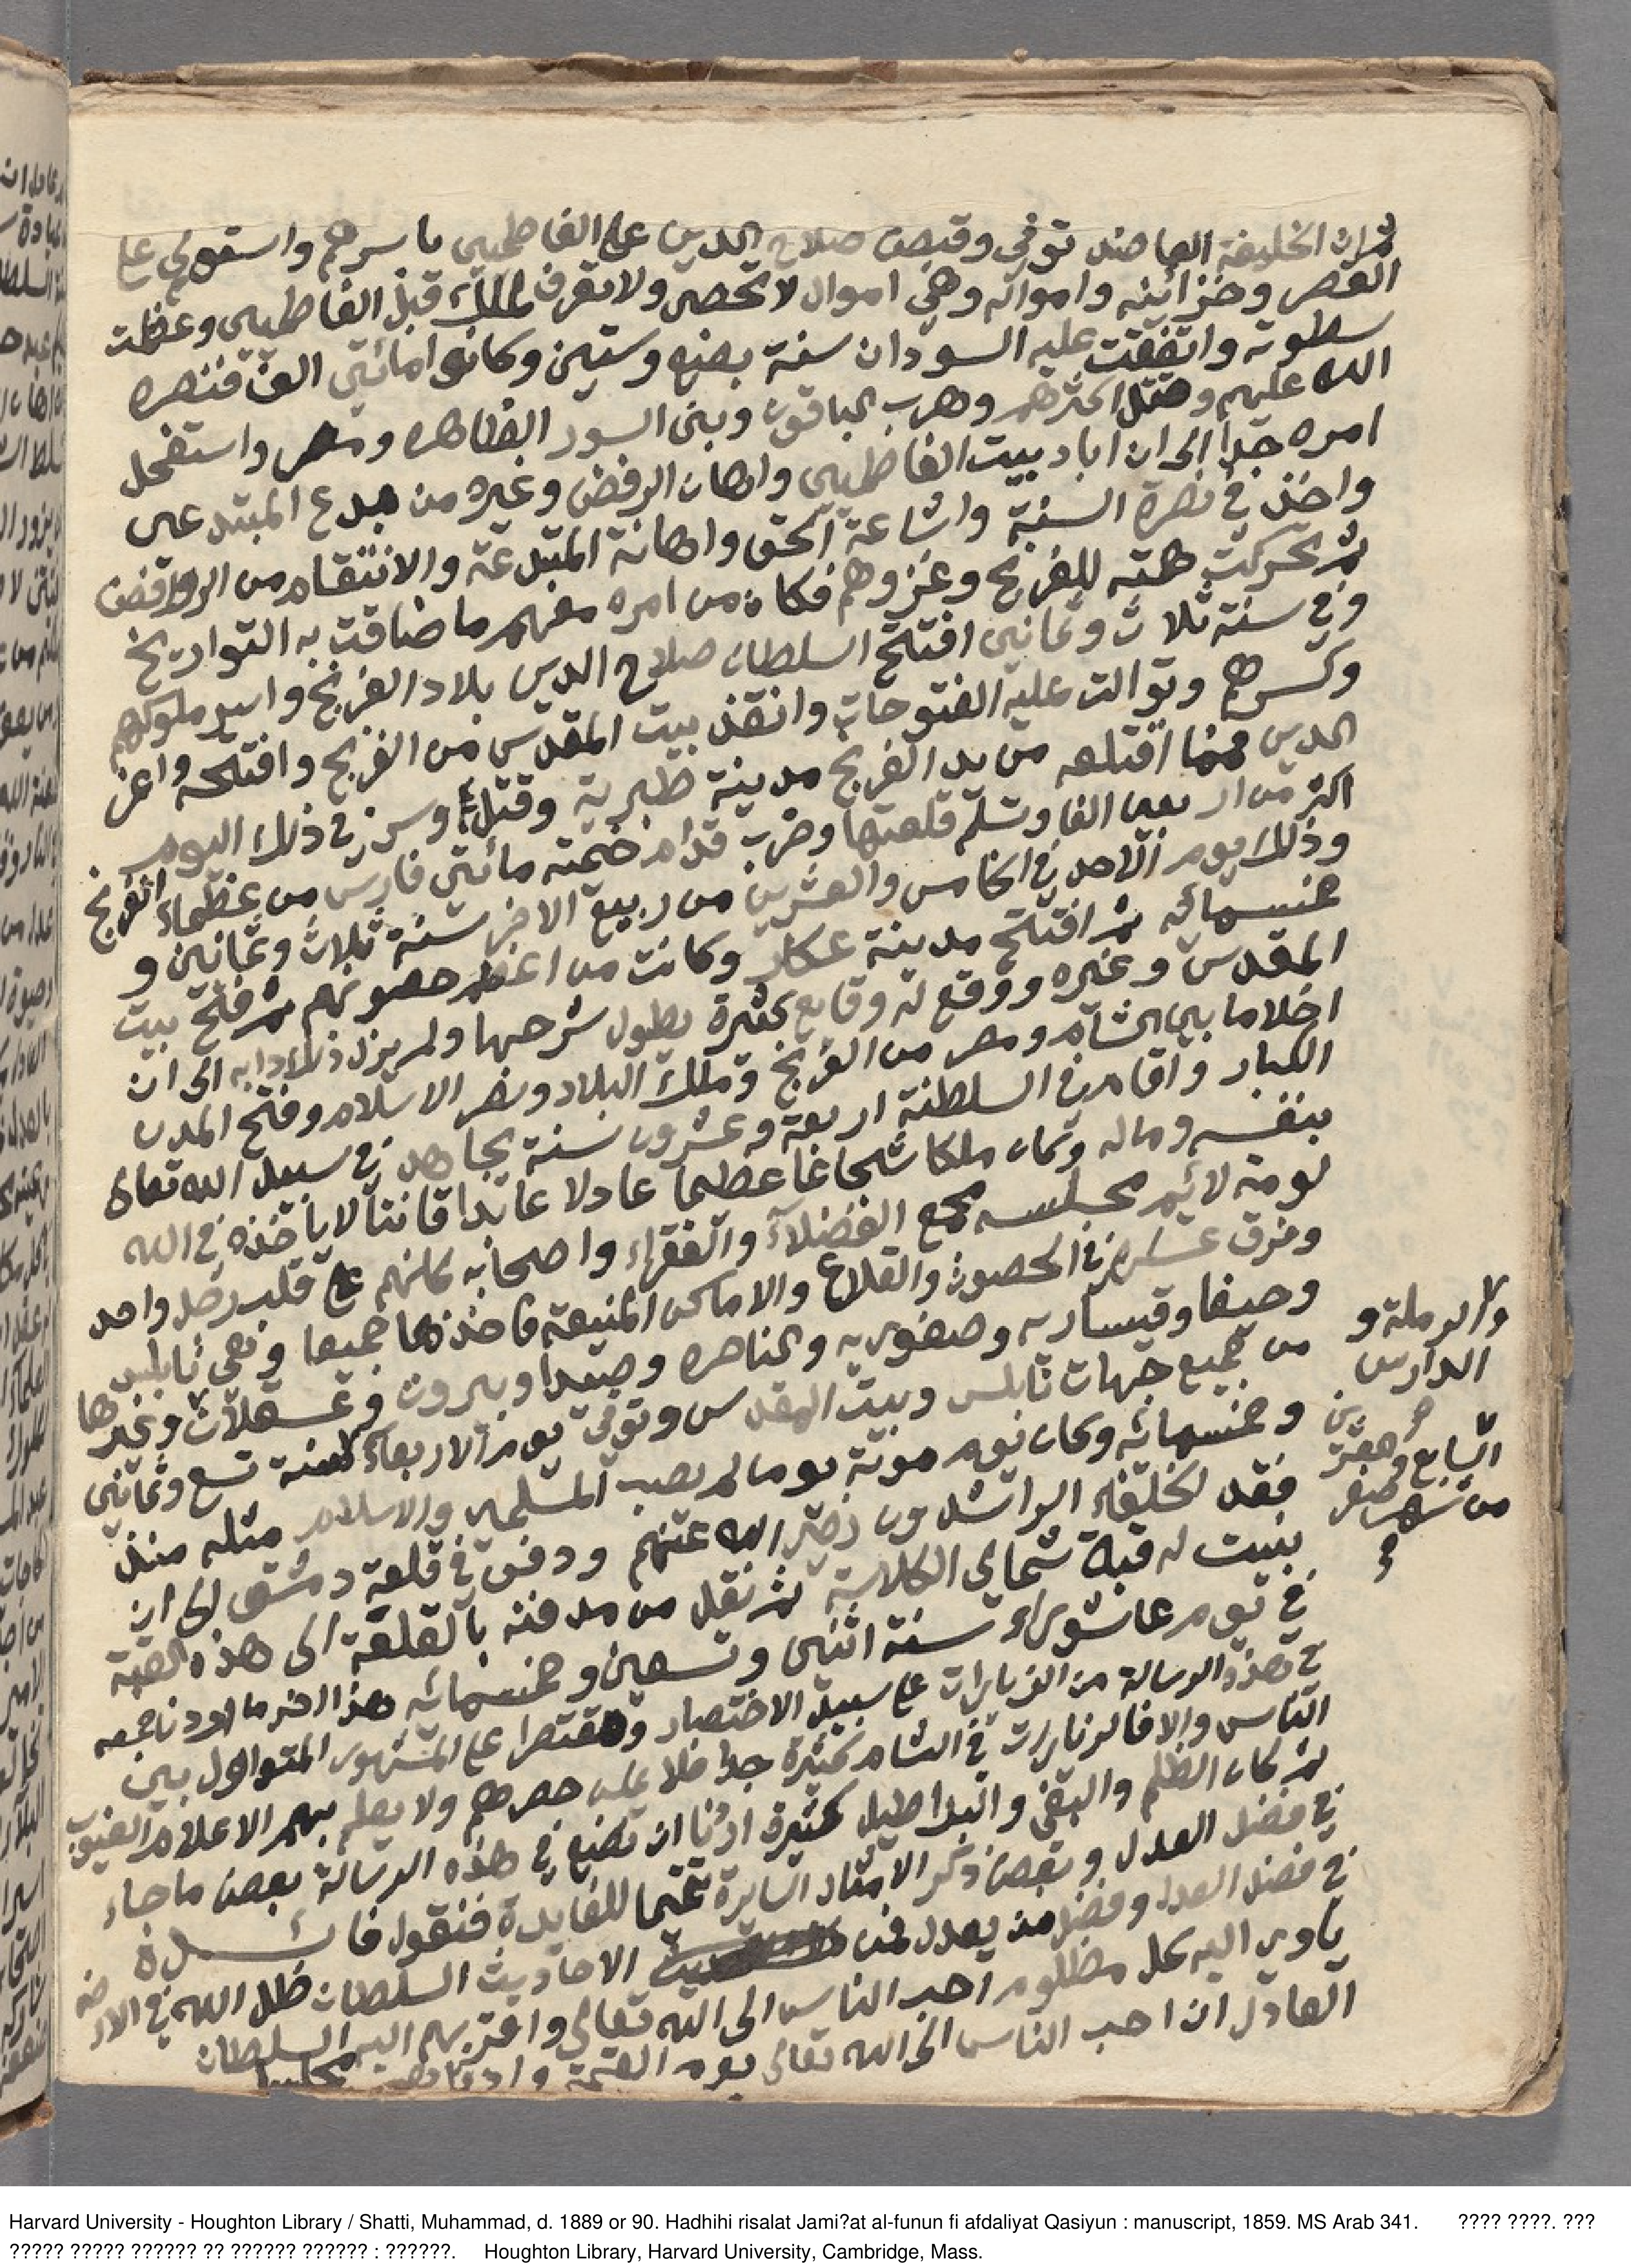 ثم ان الخليفة العاضد توفي وقبض صلاح الدين على الفاطميين باسرهم واستولى على
القصر وخزائنه وامواله وهي اموال لا تحصى ولا تعرف لملك قبل الفاطميين وعظمت
سطوته واتفقت عليه السودان سنة بضع وستين وكانوا مائتي الف فنصره
الله عليهم وقتل اكثرهم وهرب الباقون وبنى السور القاهره ومصر واستفحل
امره جدا الى ان اباد بيت الفاطميين واهان الرفض وغيره من بدع المبتدعين
واخذ في نصرة السنة واشاعة الحق واهانة المبتدعة والانتقام من الروافض
ثم تحركت همته للفرنج وغزوهم فكان من امره معهم ما ضاقت به التواريخ
وفي سنة ثلاث وثمانين افتتح السلطان صلاح الدين بلاد الفرنج واسر ملوكهم
وكسرهم وتوالت عليه الفتوحات وانقذ بيت المقدس من الفرنج وافتتحه واعز
الدين فمما افتلعه من يد الفرنج مدينة طبرية وقتل واسر في ذلك اليوم
اكثر من اربعين الفا وتسلم قلعتها وضرب قدام خيمته مائتي فارس من عظماء الفرنج
وذلك يوم الاحد في الخامس والعشرين من ربيع الاخر سنة ثلاث وثمانين و
خمسمائه ثم افتتح مدينة عكا وكانت من اعظم حصونهم ثم فتح بيت
المقدس وغيره ووقع له وقايع كثيرة يطول شرحها ولم يزل ذلك دابه الى ان
اخلا ما بين الشام ومصر من الفرنج وملك البلاد ونصر الاسلام وفتح المدن
الكبار واقام في السلطنة اربعة وعشرون سنة يجاهد في سبيل الله تعالى
بنفسه وماله وكان ملكا شجاعا عظيما عادلا عابدا قانتا لا ياخذه في الله
لومة لائم مجلسه مجمع الفضلاء والفقراء واصحابه كانهم على قلب رجل واحد
وفرق عسكره في الحصون والقلاع والاماكن المنيعة فاخذها جميعا وهي نابلس
وحيفا وقيساريه وصفوريه والناصره وصيدا وبيروت وعسقلان وغيرها
من جميع جهات نابلس وبيت المقدس وتوفي يوم الاربعاء لسنة تسع وثمانين
وخمسمائه وكان يوم موته يوما لم يصب المسلمين والاسلام مثله منذ
فقد الخلفاء الراشدون رضي الله عنهم ودفن في قلعة دمشق الى ان
بنيت له قبة شمالي الكلاسة ثم نقل من مدفنه بالقلعة الى هذه القبة
في يوم عاشوراء سنة اثنين وتسعين وخمسمائه هذا اخر ما اردنا جمعه
في هذه الرسالة من الزيارات على سبيل الاختصار ومقتصرا على المشهور المتداول بين
الناس والا فالزيارات في الشام كثيرة جدا فلا يمكن حصرهم ولا يعلم بهم الا علام الغيوب
ثم كان الظلم والبغي والبراطيل كثيرة اردنا ان نضع في هذه الرسالة بعض ما جاء
في فضل العدل وبعض ذكر الامثال السايرة تتميما للفايدة فنقول فائسدة
في فضل العدل وفضل من يعدل فمن الاحاديث السلطان ظل الله في الارض
ياوي اليه كل مظلوم احب الناس الى الله تعالى واقربهم اليه السلطان
العادل ان احب الناس الى الله تعالى يوم القيمة وادناهم مجلسا
والرملة و
الدارس
السابع وعشرين
من شهر صفر